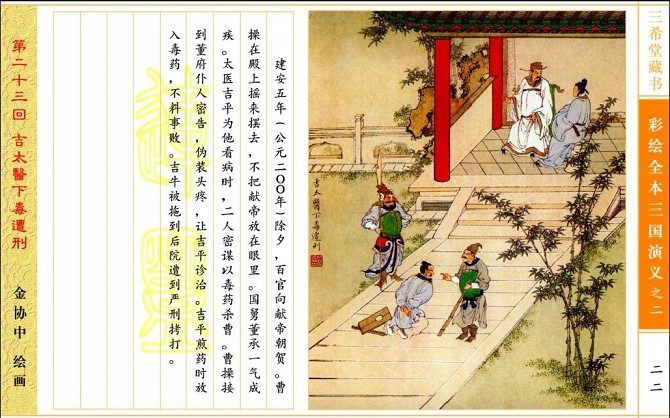 三希堂藏书
彩绘全本三国演义之二
二二
吉太醫下毒遭刑
建安五年(公元二〇〇年)除夕,百官向献帝朝贺。曹
操在殿上摇来摆去,不把献帝放在眼里。国舅董承一气成
疾。太医吉平为他看病时,二人密谋以毒药杀曹。曹操接
到董府仆人密告,伪装头疼,让吉平诊治。吉平煎药时放
入毒药,不料事败。吉平被拖到后院遭到严刑拷打。
第二十三回 吉太醫下毒遭刑
金协中 绘画